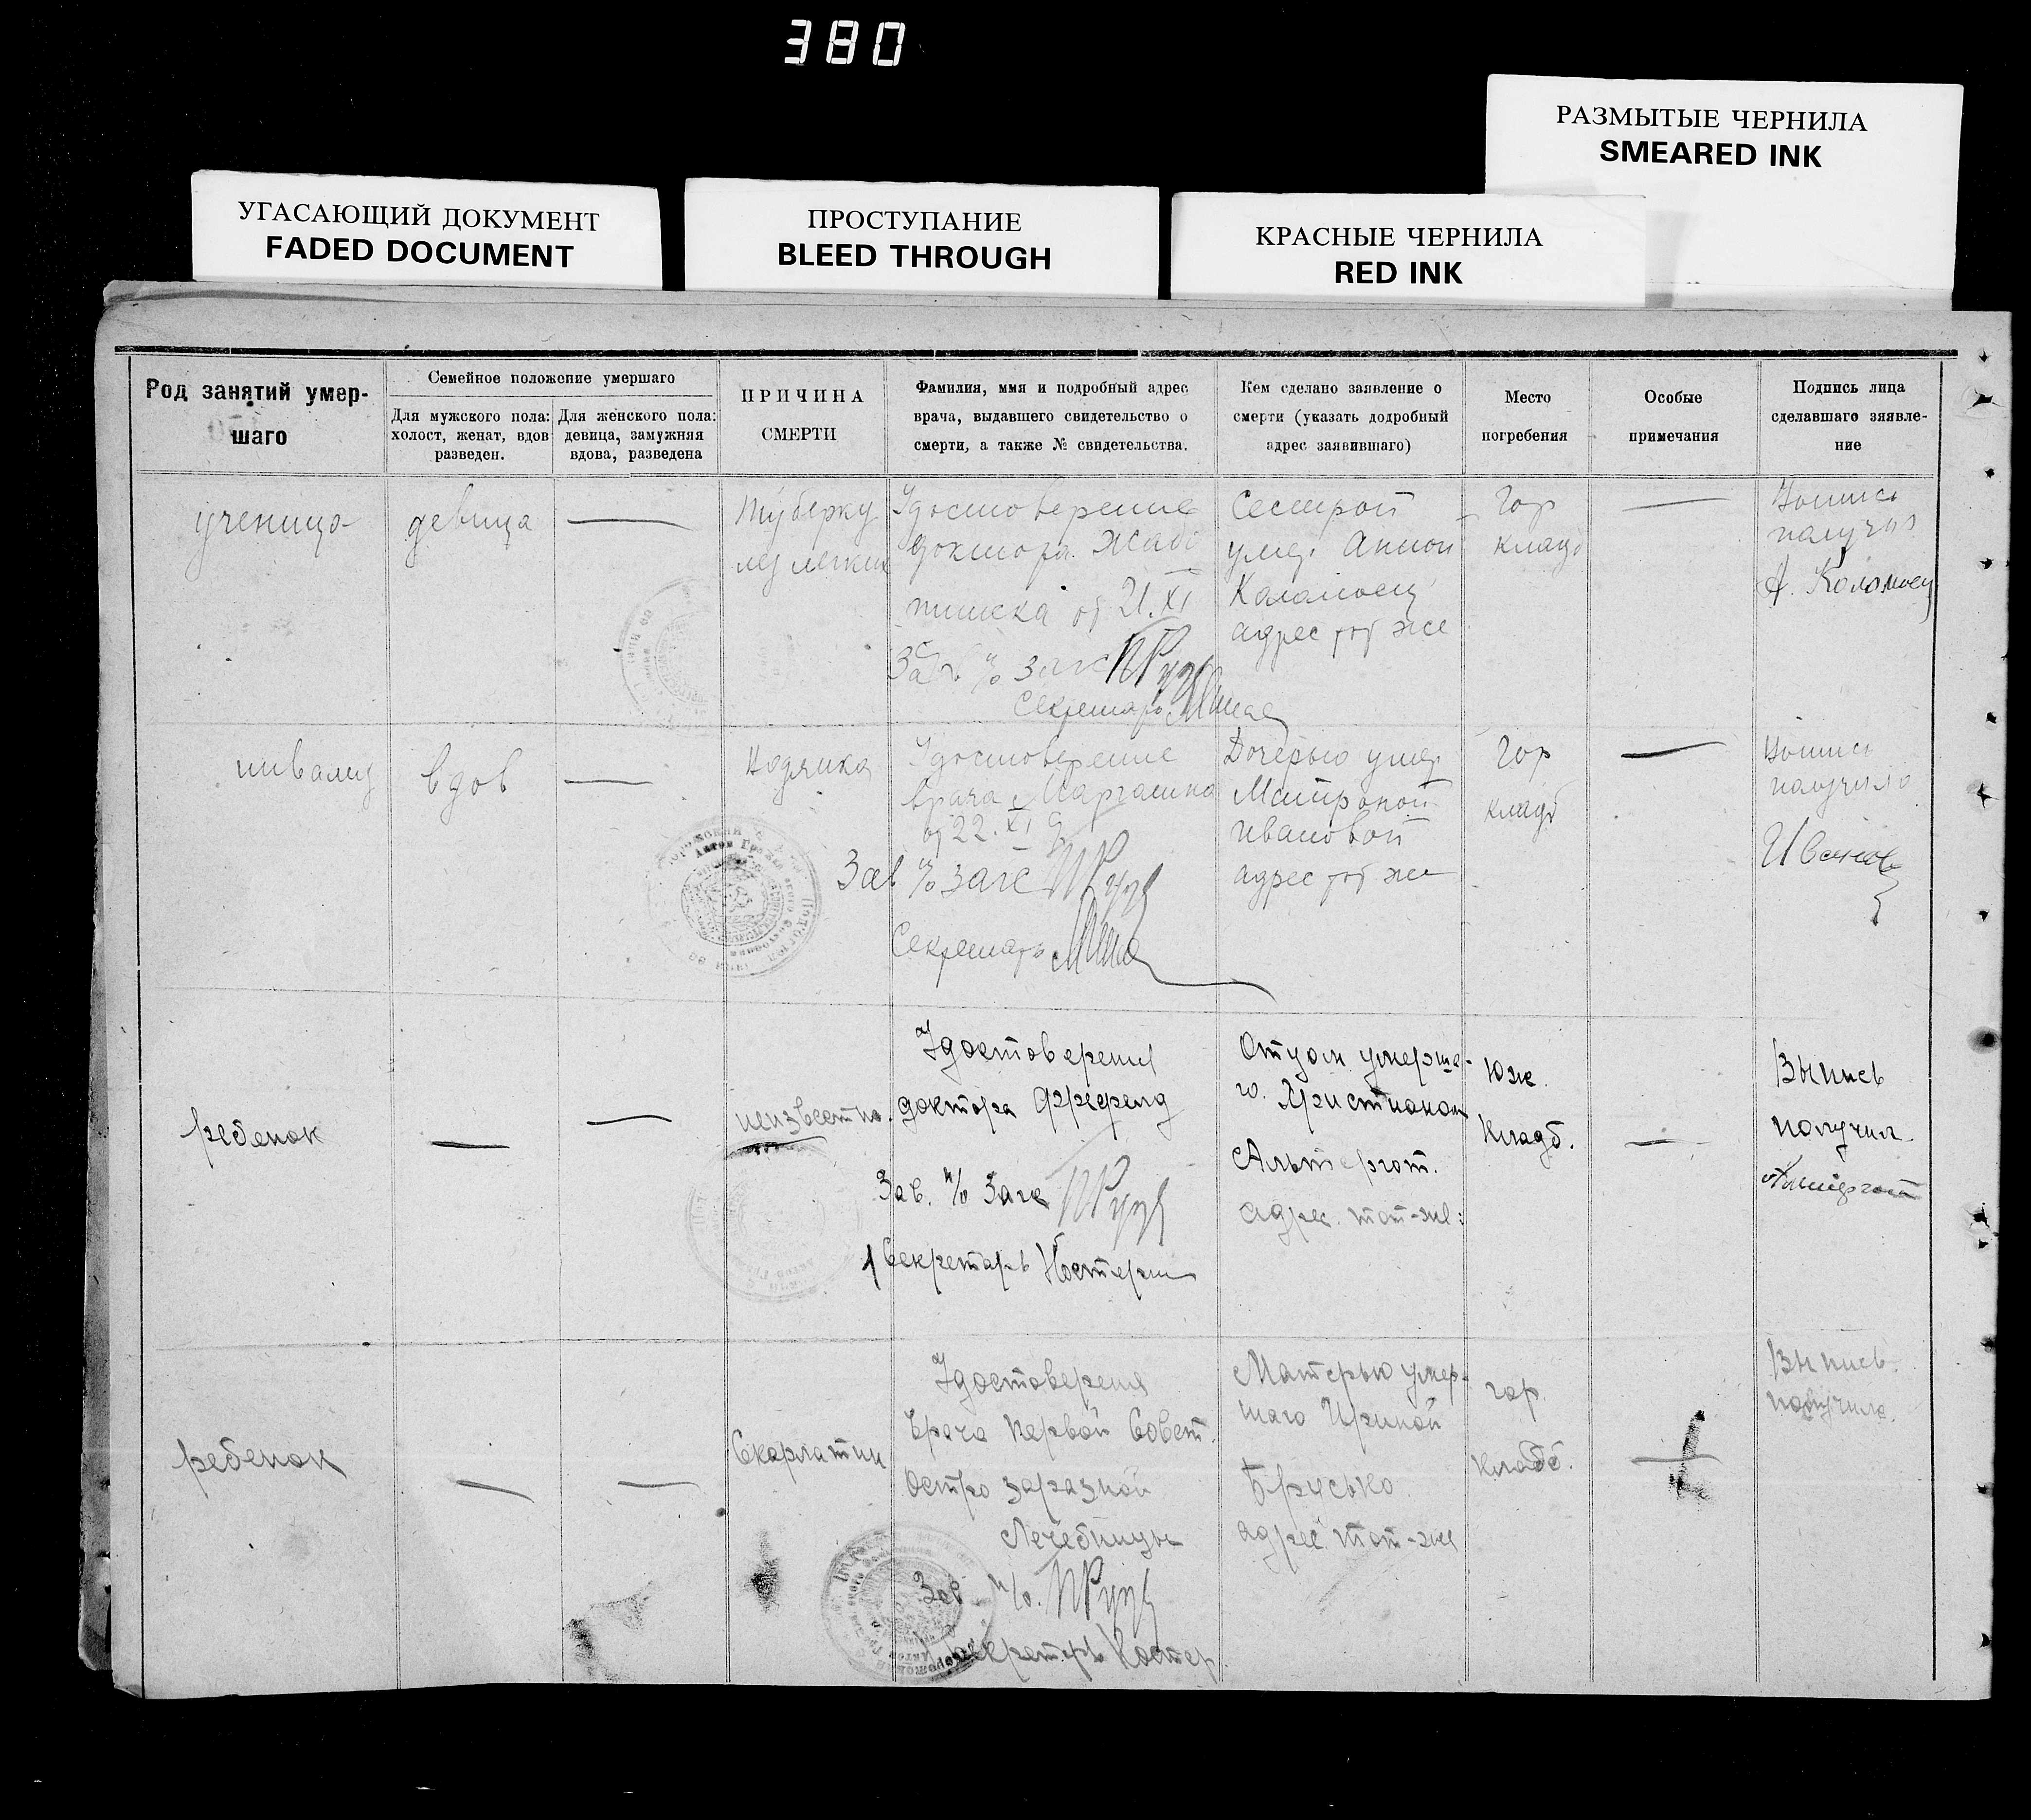 380
РАЗМЫТЫЕ ЧЕРНИЛА
SMEARED INK
УГАСАЮЩИЙ ДОКУМЕНТ
FADED DOCUMENT
ПРОСТУПАНИЕ
BLEED THROUGH
КРАСНЫЕ ЧЕРНИЛА
RED INK
Род занятий умер-
шаго
Семейное положение умершаго
Для мужского пола:
холост, женат, вдов
разведен.
Для женского пола:
девица, замужняя
вдова, разведена
ПРИЧИНА
СМЕРТИ
Фамилия, имя и подробный адрес
врача, выдавшего свидетельство о
смерти, а также № свидетельства.
Кем сделано заявление о
смерти (указать додробный
адрес заявившаго)
Место
погребения
Особые
примечания
Подпись лица
сделавшаго зяявле-
ние
ученица
девица
—
Туберку
лез легких
Удостоверение
доктора
от 21.XI
Зав п/о загс
Секретарь
Сестрой
умер. Анной
Каламоец
адрес тот же
Гор
кладб
—
получил
А. Коломоец
инвалид
вдов
—
Водянка
Удостоверение
врача
от 22.XI
Зав п/о загс
Секретарь
Дочерью умер
Матроной
Ивановой
адрес тот же
Гор
кладб
—
получило
Иванов
ребенок
—
—
неизвестно.
Удостоверения
доктора
Зав. п/о Загс
Секретарь
Отцом умерше-
го. Христианом
Альтергот.
адрес. тот-же:
Юж.
Кладб.
—
Выпись
получил.
Альтергот
ребенок
—
—
Скарлатин
Удостоверения
Врача Первой Совет.
Остро заразной
Лечебницы
Зав п/о.
Секретарь
Матерью умер-
шаго Ириной
Брусько
адрес тот-же
гор.
кладб.
—
Выпись.
получила.